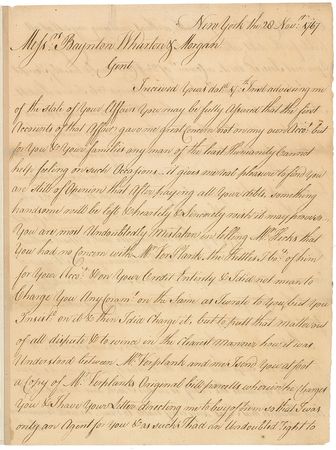 New York the 28 Nov.r 1767
Mess.rs Baynton Wharton & Morgan
Gent
I received Yours dat.d 5.th Inst advising me
of the state of Your Affairs You may be fully Assured that the first
Accounts of that Affair gave me great Concern but on my own Acco.t but
for You & Your families any man of the least Humanity Cannot
help feeling on such Occasions it gives me vast pleasure to find You
are Still of Opinion that After paying all Your debts, something
handsome will be left & heartily & Sincerely wish it may prove so
You are most Undoubtedly Mistaken in telling Mr. Hocks that
You had no Concern with Mr. VerPlank. The Kettles I bo.t of him
for Your Acco.t & on Your Credit Entirely & I did not mean to
Charge You Any Comm.n on the Same as I wrote to You, but You
Insist.d on it & then I did Charge it, but to put that matter out
of all dispute & to evince in the Clearest Manner how it was
Understood between Mr. Verplank and me I send You at foot
a Copy of Mr. Verplanks Original bill parcells wherein he Charges
You & I have Your Letter directing me to buy of him so that I was
only an Agent for You & as such I had an Undoubted Right to